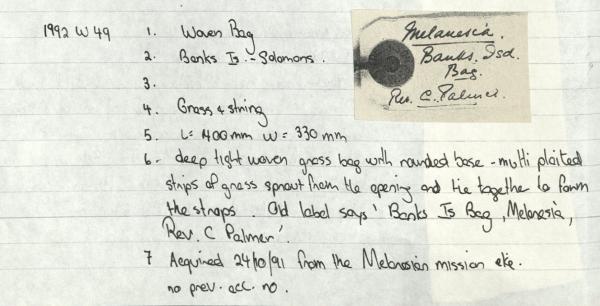 1992 W 49 1. Woven Bag
2. Banks Is. - Solomons.
3.
4. Grass & string
5. L = 400mm W = 330 mm
6. deep tight woven grass bag with rounded base - multi plaited
strips of grass sprout from the opening and tie together to form
the straps. Old label says 'Banks Is Bag, Melanesia,
Rev. C Palmer'.
7 Acquired 24/10/91 from the Melanesian mission etc.
no prev. acc. no.
Melanesia.
Banks. Isd.
Bag.
Rev. C. Palmer.